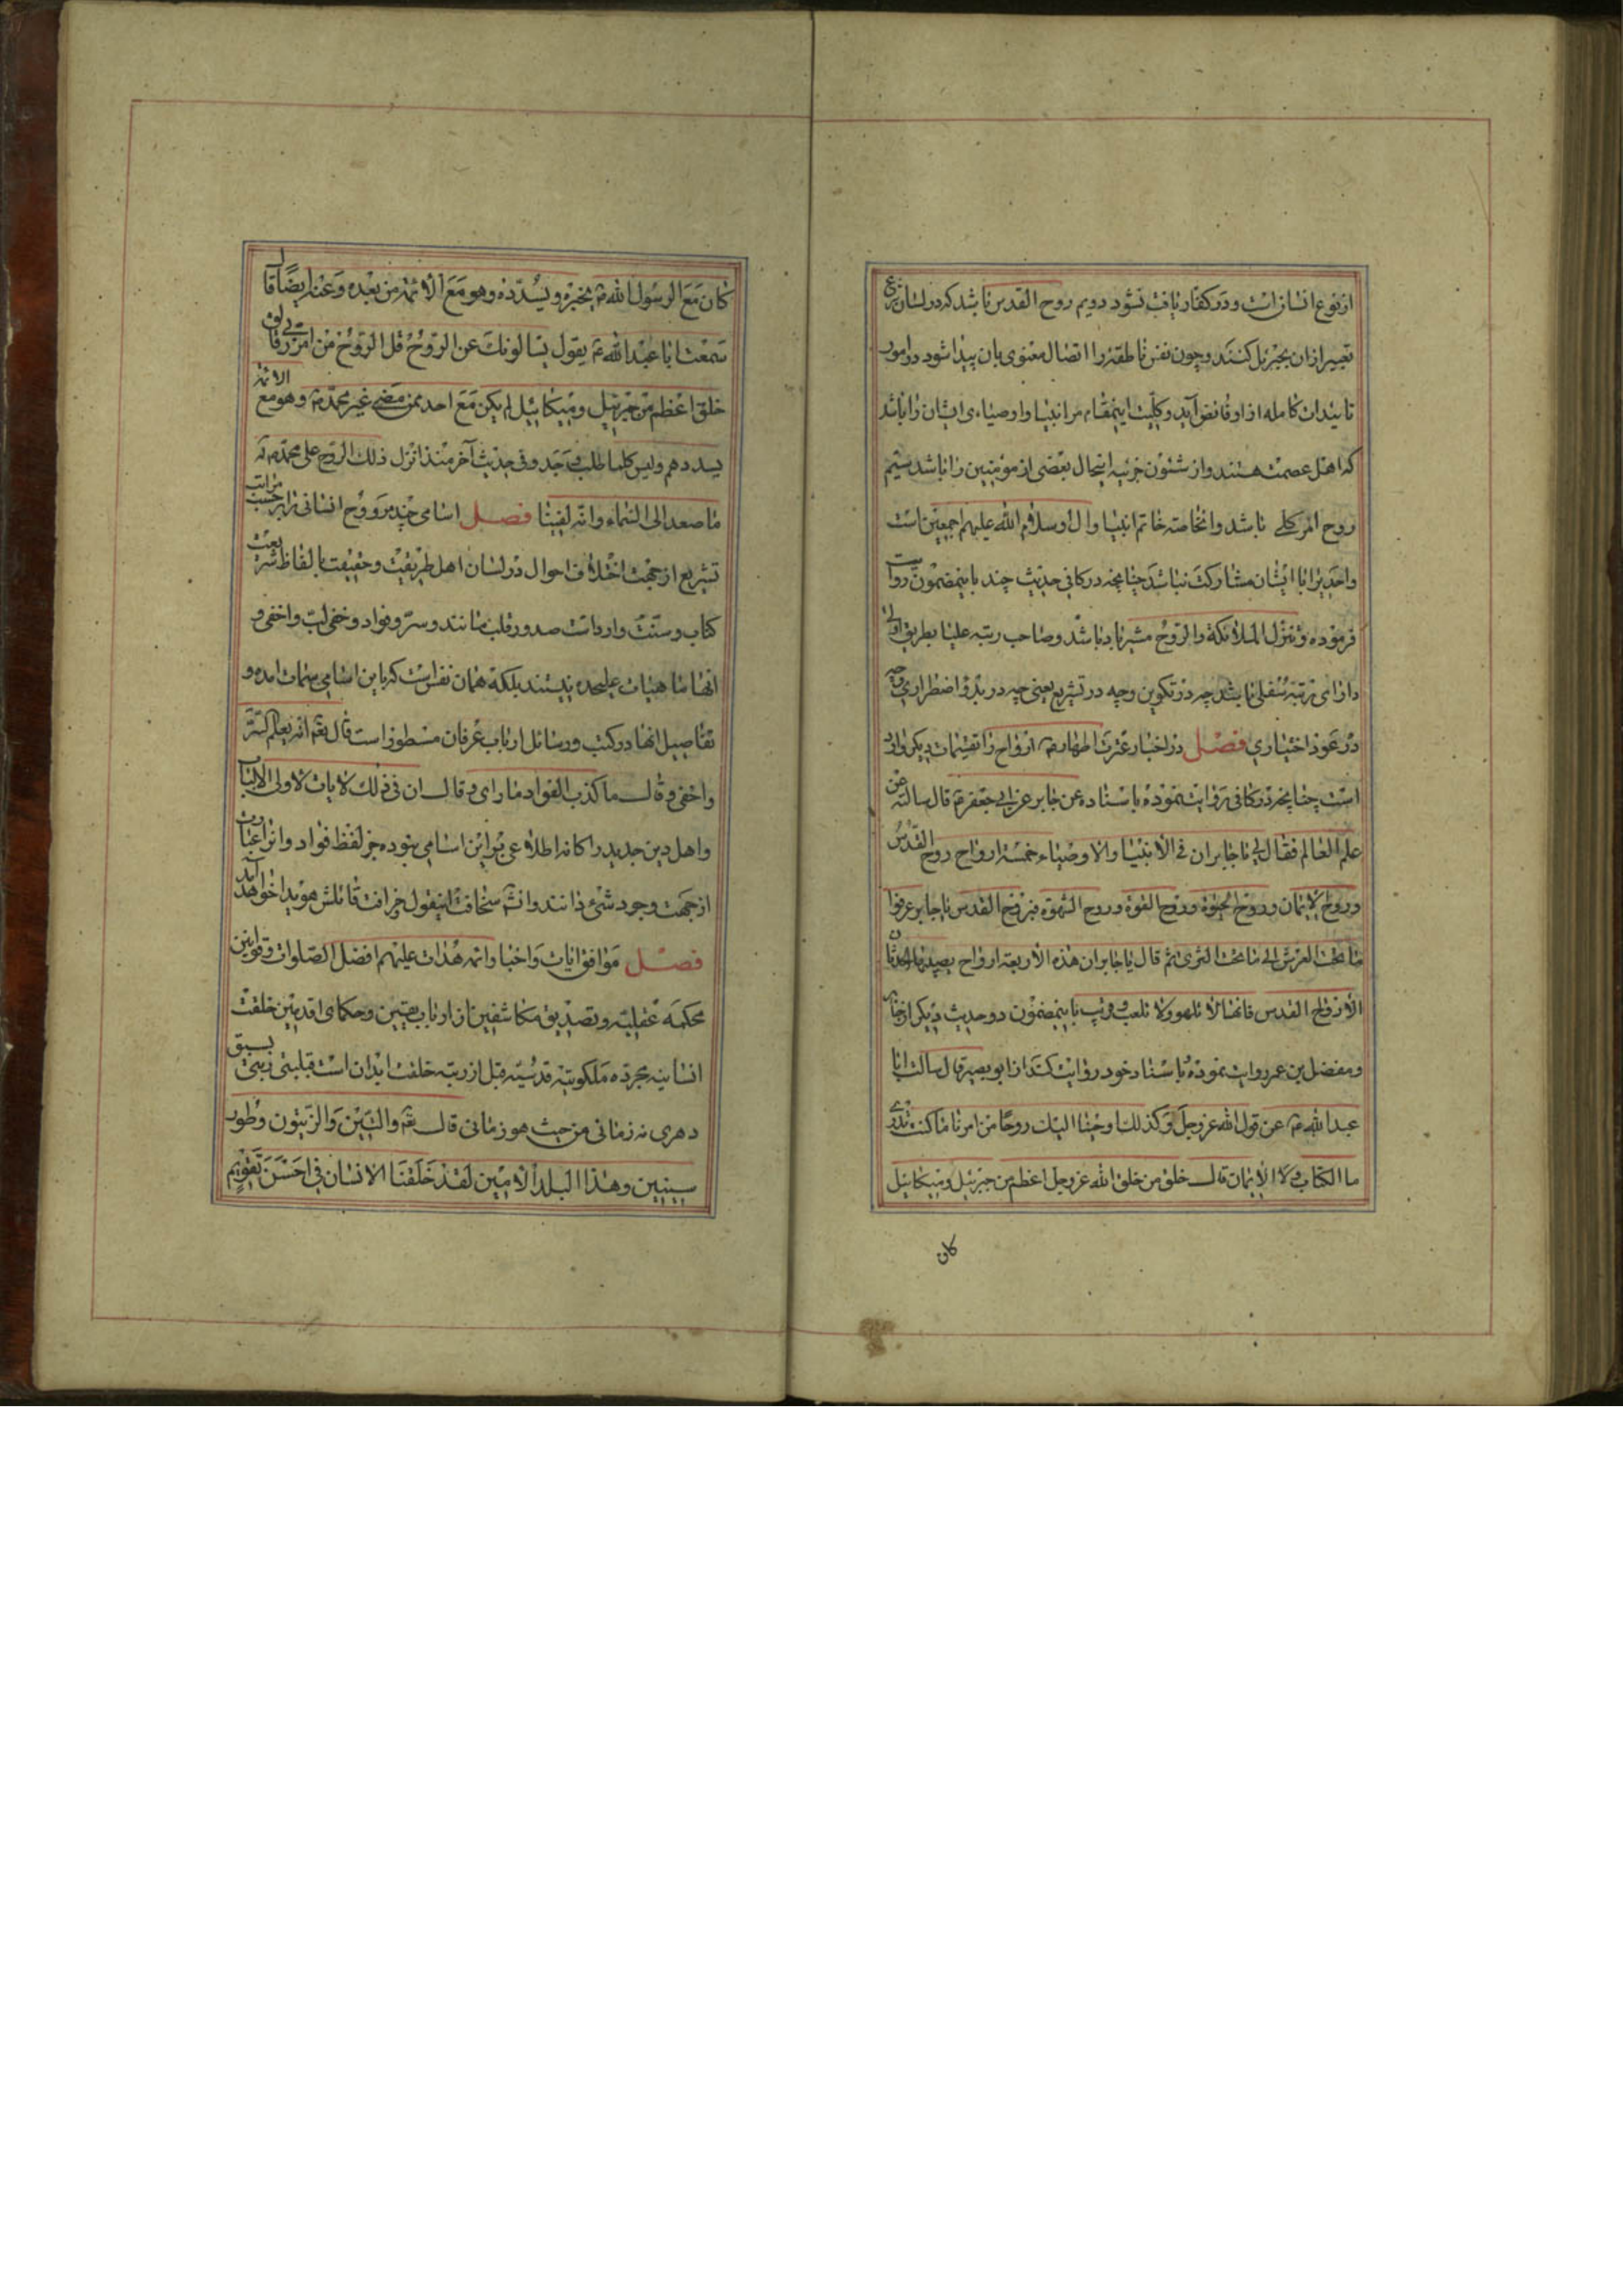 از نوع انسان است و در کفار یافت نشود دویم روح القدس باشد که در لسان شرع
تعبیر از ان بجبرئیل کنند و چون نفس ناطقه را اتصال معنوی بان پیدا شود در امور
تاییدات کامله از او فائض آید و کلیت اینمقام مر انبیا و اوصیاءی ایشان را باشد
که اهل عصمت هستند و از شئون جزئیه اینحال بعضی از مؤمنین را باشد سیّم
روح امر کلی باشد و انخاصّه خاتم انبیا و ال او سلام الله علیهم اجمعین است
واحدیرا با ایشان مشارکت نباشد چنانچه در کافی حدیث چند باینمضمون روایت
فرموده و تنزّل الملائکة و الرّوح مشیر بان باشد و صاحب رتبه علیا بطریق اولی
دارای رتبه سفلی باشد چه در تکوین و چه در تشریع یعنی چه در بدو اضطراری و چه
در عود اختیاری فصل در اخبار عترت اطهار ع ارواح را تقسیمات دیکر وارد
است چنانچه در کافی روایت نموده باسناده عن جابر عن ابی جعفر ع قال سالته عن
علم العالم فقال لی یا جابر ان فی الأنبیا و الاوصیاء خمسة ارواح روح القدس
و روح الایمان و روح الحیوة و روح القوة و روح الشهوة فبروح القدس یا جابر عرفوا
ما تحت العرش الی ما تحت الثری ثم قال یا جابر ان هذه الأربعة ارواح یصیبها الحدثان
الا روح القدس فانها لا تلهو و لا تلعب و قریب باینمضمون دو حدیث دیکر از جابر
و مفضل بن عمر روایت نموده و باسناد خود روایت کند از ابو بصیر قال سالت ابا
عبد الله ع عن قول الله عز و جل و کذلک اوحینا الیک روحًا من امرنا ما کنت تدری
ما الکتاب و لا الایمان قال خلق من خلق الله عز و جل اعظم من جبرئیل و میکائیل
کان
کان مع الرسول الله ص یخبره و یسدّده و هو مع الأئمة من بعده و عنه ایضًا قال
سمعت ابا عبد الله ع یقول یسالونک عن الروح قل الروح من امر ربی قال
خلق اعظم من جبرئیل و میکائیل لم یکن مع احد ممن مضی غیر محمّد ص و هو مع الائمة
یسددهم و لیس کلما طلب وجد و فی حدیث آخر منذ انزل ذلک الروح علی محمّد ص
ما صعد الی السماء و انه لفینا فصل اسامی چند مر روح انسانی را بر حسب مراتب
تشریع از جهت اختلاف احوال در لسان اهل طریقت و حقیقت بالفاظ شریعت
کتاب و سنّت وارد است صدور قلب مانند و سرّ و فواد و خفی لبّ و اخفی و
انها ماهیات علیحده نیستند بلکه همان نفس است که باین اسامی مسمات امده و
تفاصیل انها در کتب و رسائل ارباب عرفان مسطور است قال تعم انه یعلم السّرّ
و اخفی و قال ما کذب الفواد ما رای و قال ان فی ذلک لایات لاولی الالباب
و اهل دین جدید را کانه اطلاعی بر این اسامی نبوده جز لفظ فواد و انرا عبارت
از جهت وجود شیء دانند و انشم سخافت اینقول و خرافت قائلش هویدا خواهد آمد
فصل موافق ایات و اخبار ائمه هدات علیهم افضل الصلوات و قوانین
محکمه عقلیه و تصدیق مکاشفین از ارباب یقین و حکمای اقدمین خلقت
انسانیه مجرده ملکوتیه قدسیه قبل از رتبه خلقت ابدان است قبلیتی و سبقی
دهری نه زمانی من حیث هو زمانی قال تعم و التین و الزیتون و طور
سینین و هذا البلد الأمین لقد خلقنا الانسان فی احسن تقویم